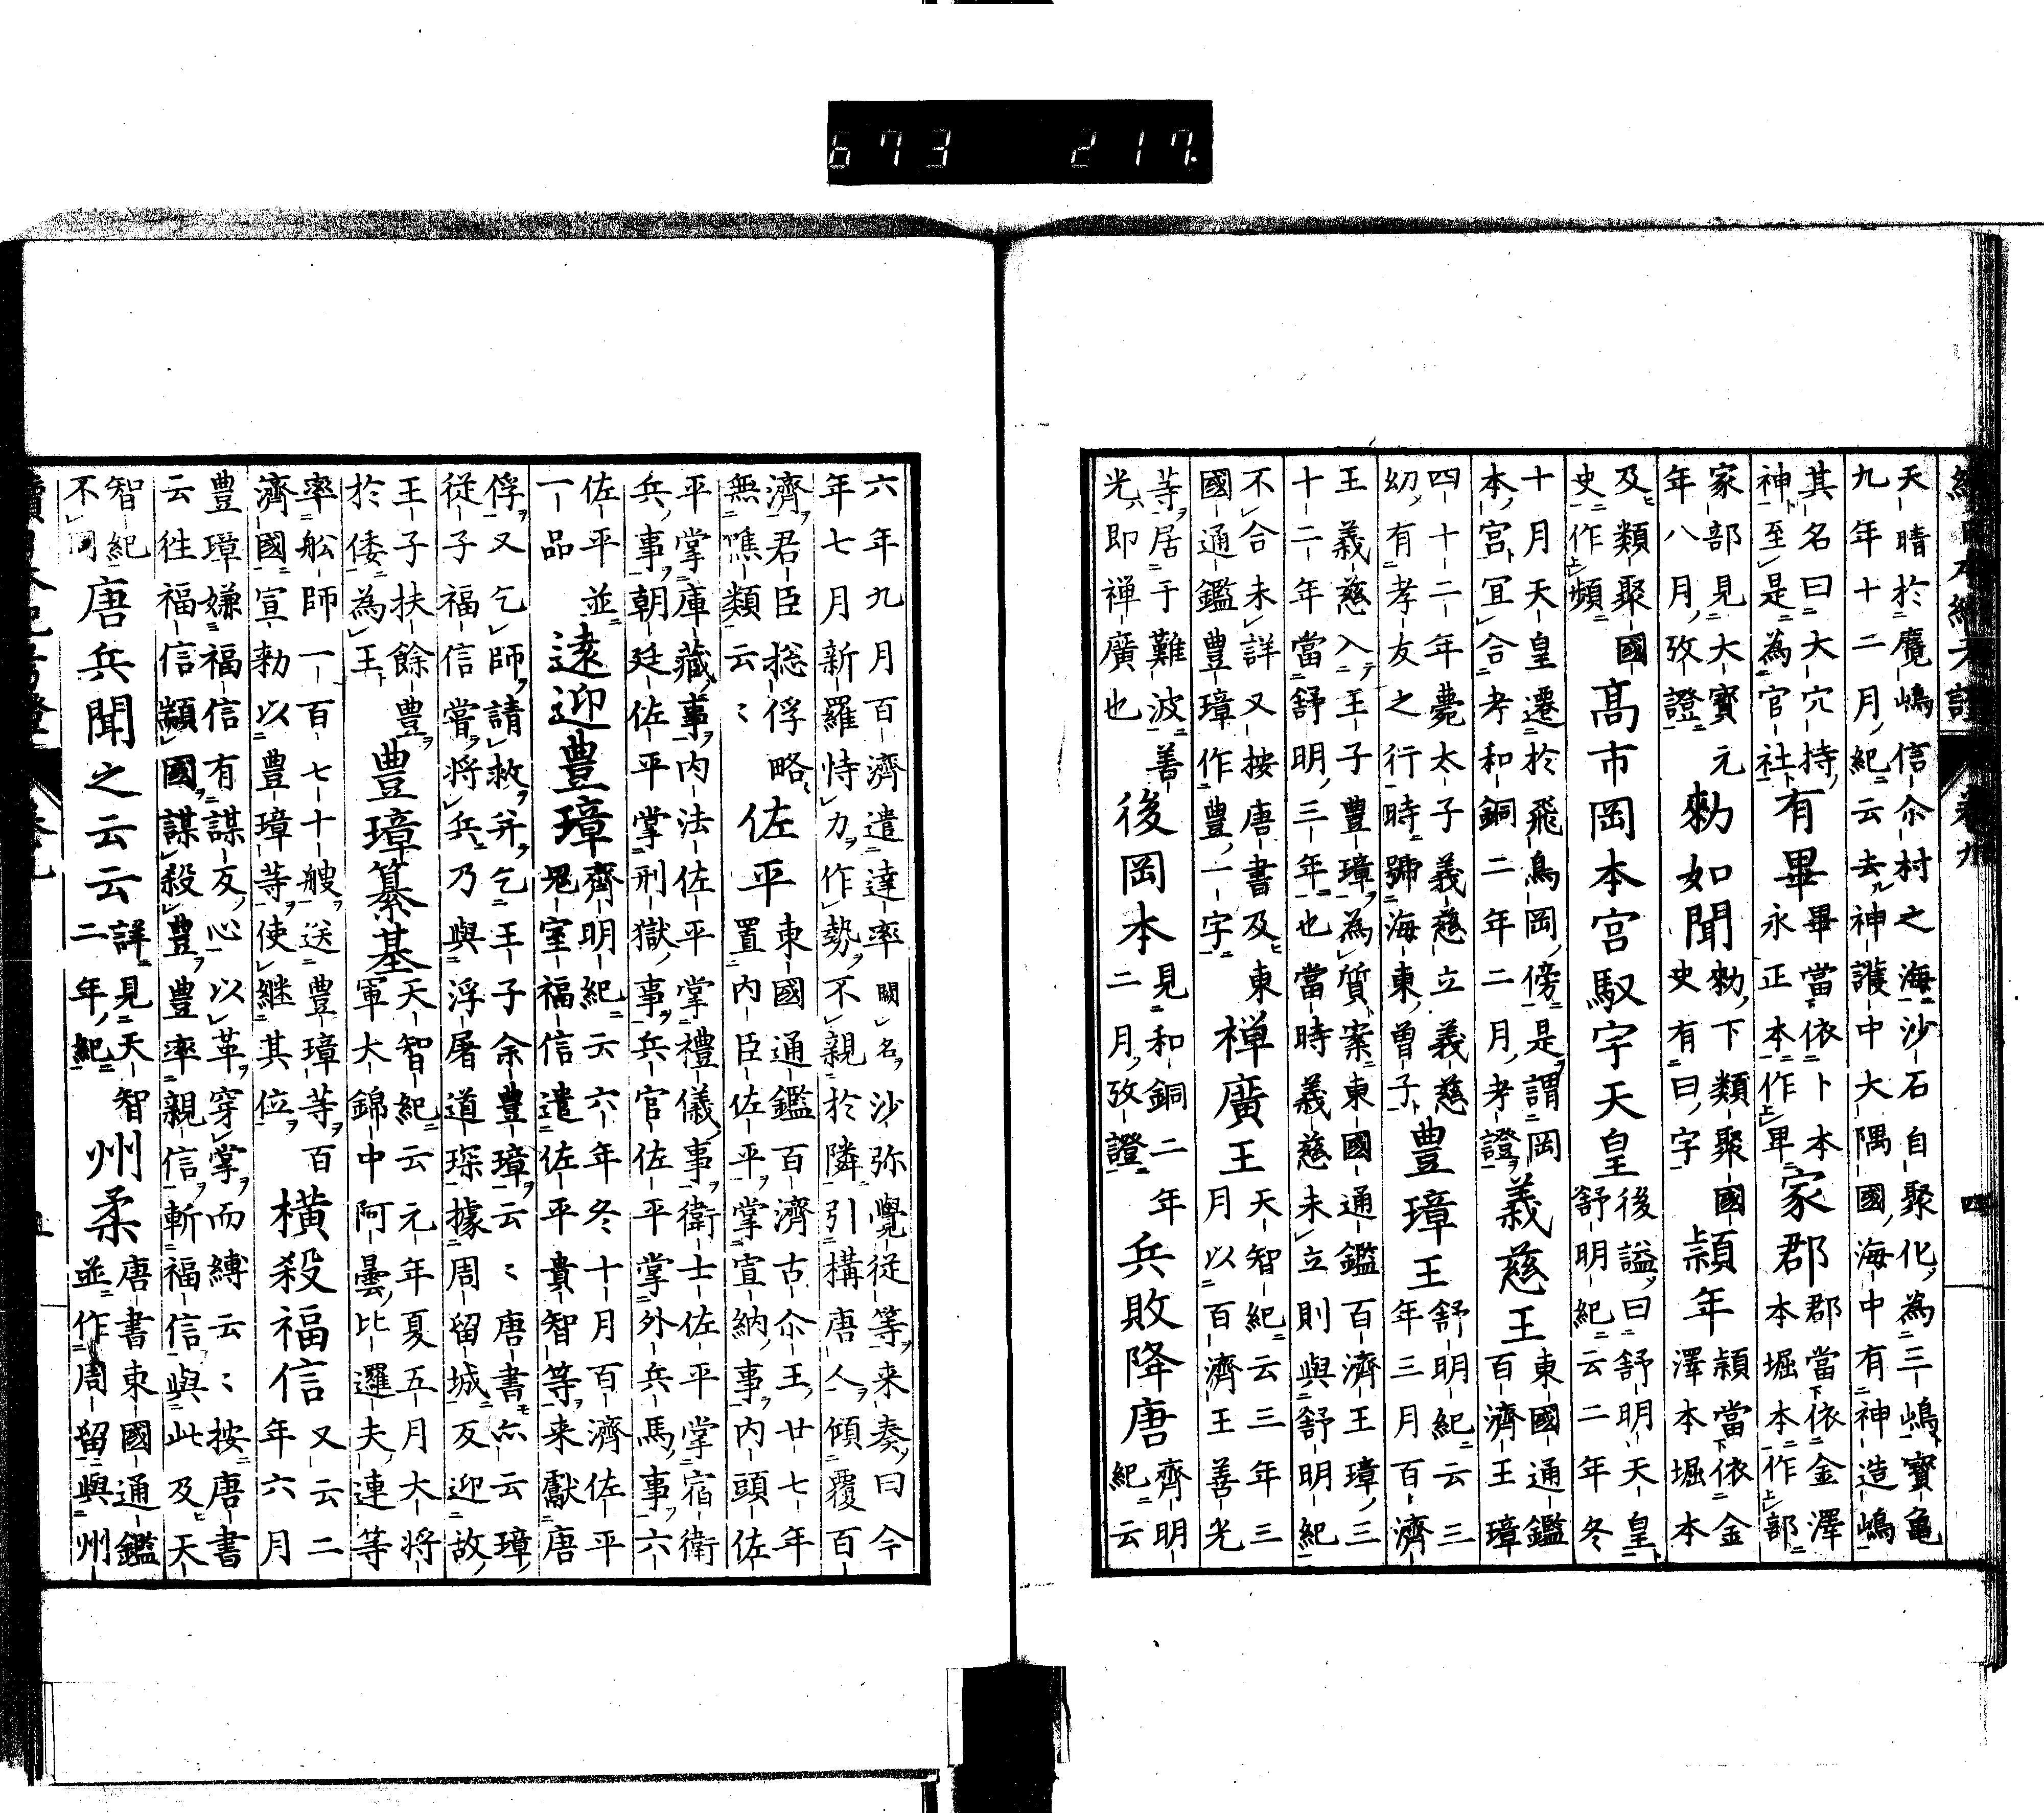 673 217.
天晴於麑嶋信尒村之海沙石自聚化為三嶋寶龜
九年十二月紀云去神護中大隅國海中有神造嶋
其名曰大穴持
神至是為官社
有畢
畢當依卜本
永正本作畢
家郡
郡當依金澤
本堀本作部
家部見大寶元
年八月攷證
勅如聞
勅下類聚國
史有曰字
頴年
頴當依金
澤本堀本
及類聚國
史作頻
髙市岡本宮馭宇天皇
後謚曰舒明天皇
舒明紀云二年冬
十月天皇遷於飛鳥岡傍是謂岡
本宮宜合考和銅二年二月考證
義慈王
東國通鑑
百濟王璋
四十二年薨太子義慈立義慈
幼有孝友之行時號海東曽子
豊璋王
舒明紀云三
年三月百濟
王義慈入王子豊璋為質案東國通鑑百濟王璋三
十二年當舒明三年也當時義慈未立則與舒明紀
不合未詳又按唐書及東
國通鑑豊璋作豊一字
禅廣王
天智紀云三年三
月以百濟王善光
等居于難波善
光即禅廣也
後岡本
見和銅二年
二月攷證
兵敗降唐
齊明
紀云
六年九月百濟遣達率闕名沙弥覺従等来奏曰今
年七月新羅恃力作勢不親於隣引構唐人傾覆百
濟君臣総俘略
無噍類云〻
佐平
東國通鑑百濟古尒王廿七年
置内臣佐平掌宣納事内頭佐
平掌庫藏事内法佐平掌禮儀事衛士佐平掌宿衛
兵事朝廷佐平掌刑獄事兵官佐平掌外兵馬事六
佐平並
一品
逺迎豊璋
齊明紀云六年冬十月百濟佐平
鬼室福信遣佐平貴智等来獻唐
俘又乞師請救并乞王子余豊璋云〻唐書亦云璋
従子福信嘗將兵乃與浮屠道琛據周留城反迎故
王子扶餘豊
於倭為王
豊璋纂基
天智紀云元年夏五月大将
軍大錦中阿曇比邏夫連等
率舩師一百七十艘送豊璋等百
濟國宣勅以豊璋等使継其位
横殺福信
又云二
年六月
豊璋嫌福信有謀反心以革穿掌而縛云〻按唐書
云往福信顓國謀殺豊豊率親信斬福信與此及天
智紀
不同
唐兵聞之云云
詳見天智
二年紀
州柔
唐書東國通鑑
並作周留與州